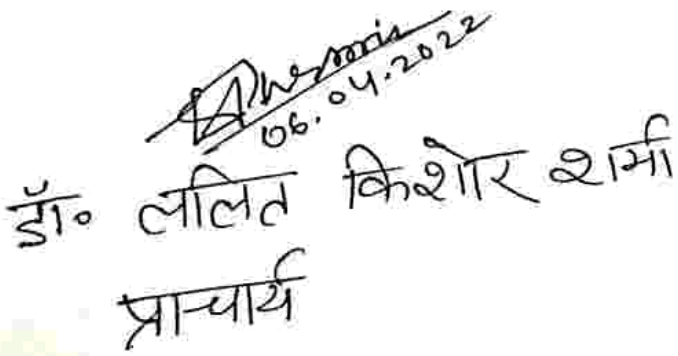 06.04.2022
डॉ० ललित किशोर शर्मा
प्राचार्य